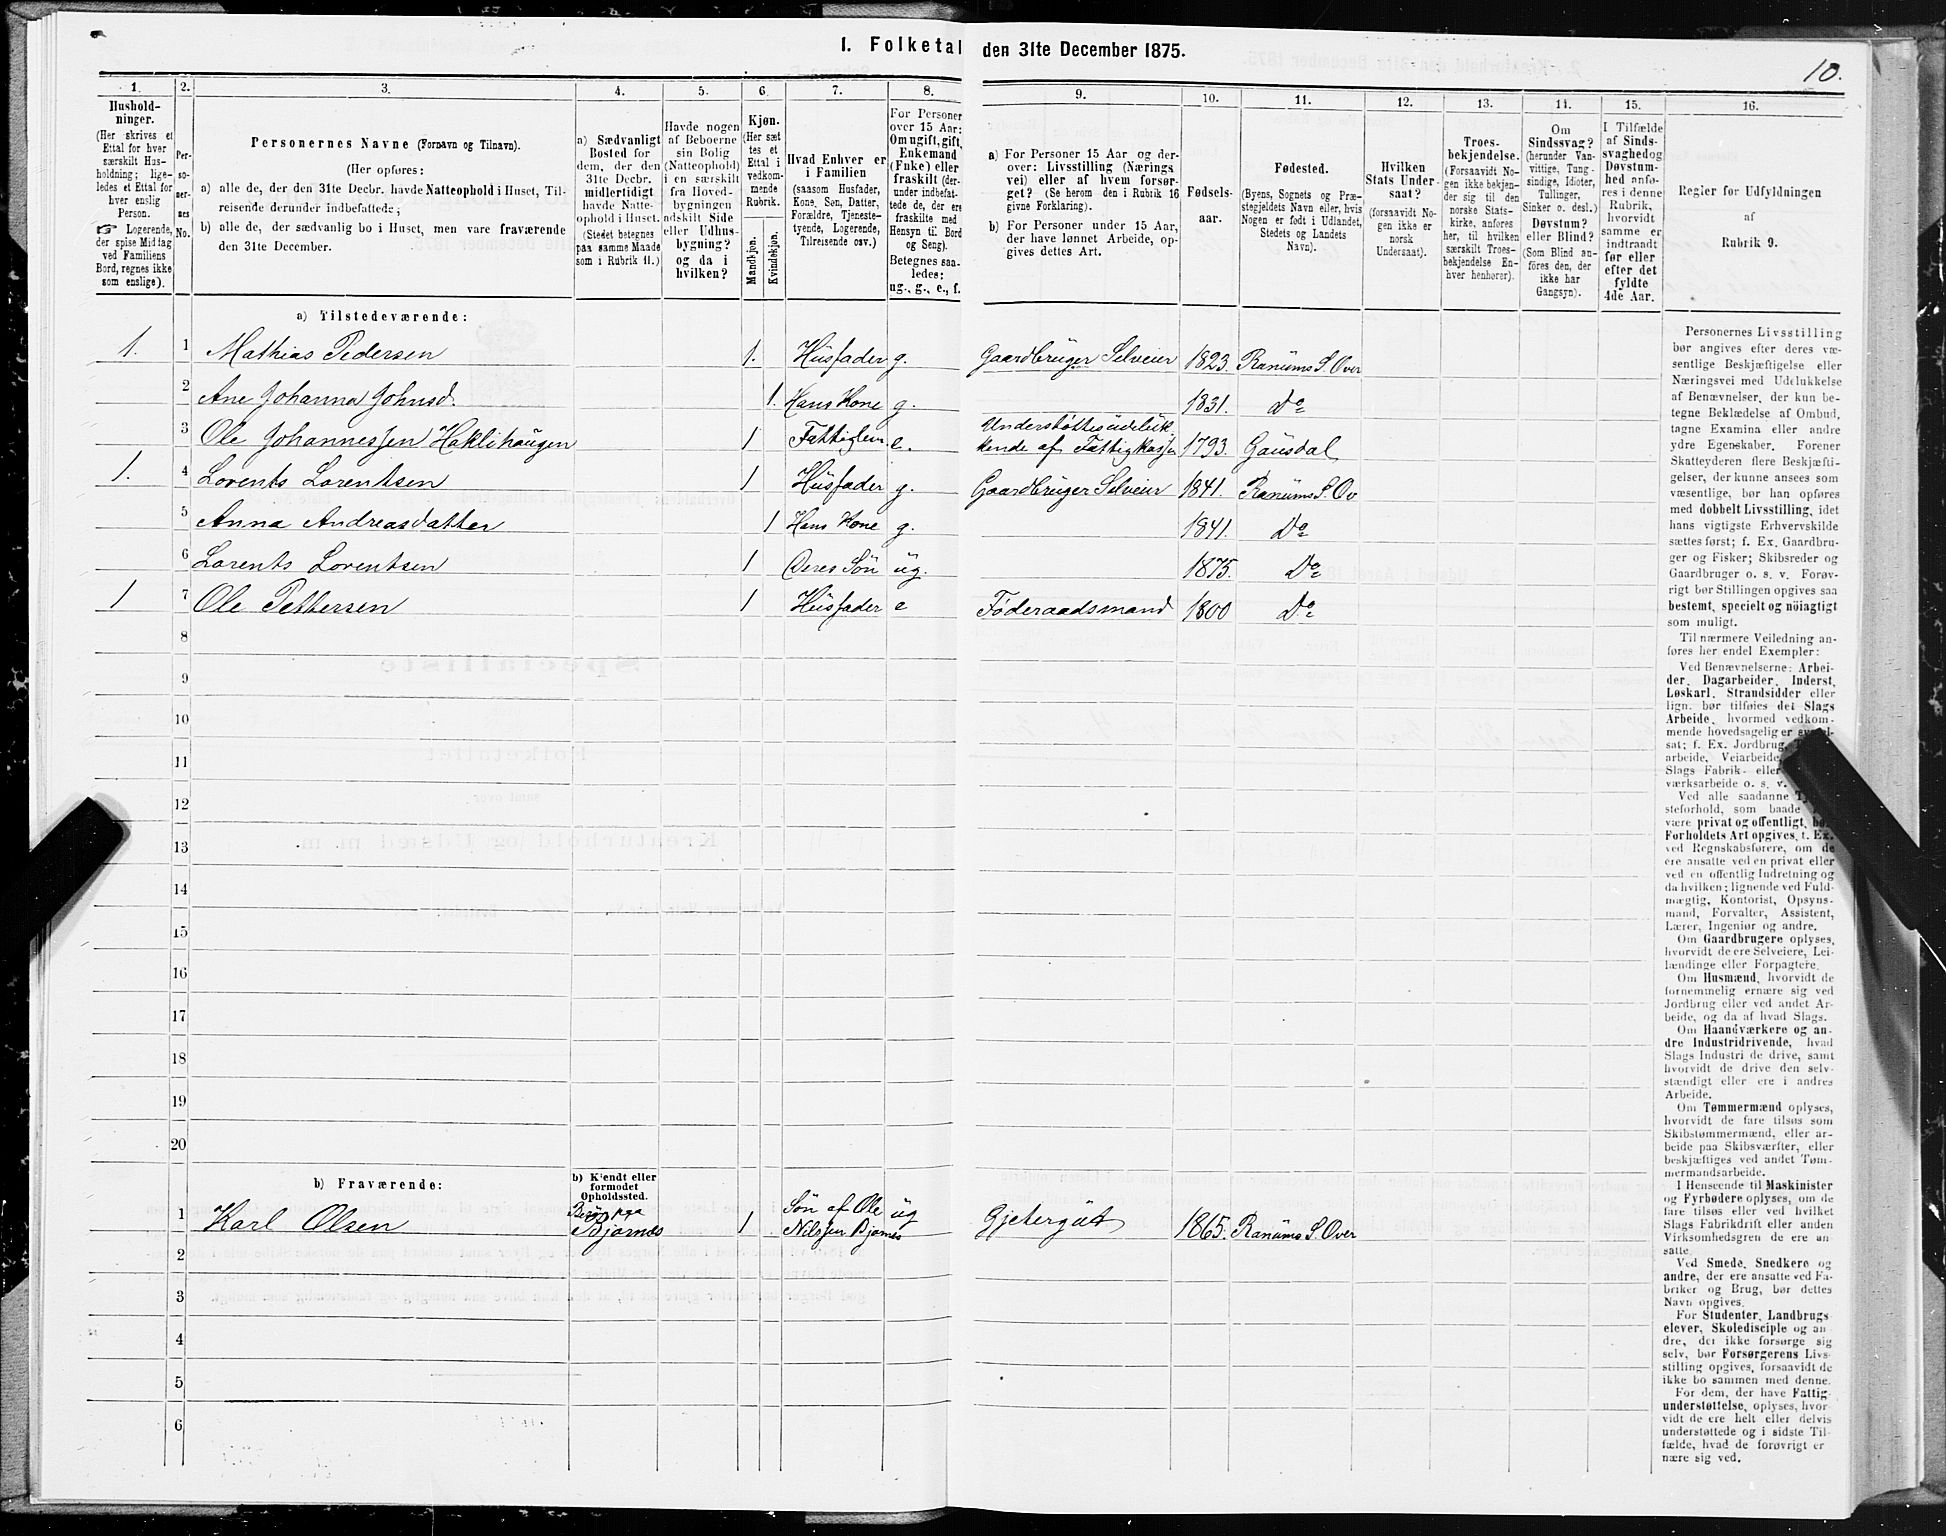 I. Folketal den 31te December 1875.
10.
1.
2.
3.
4.
5.
6.
7.
8.
9.
10.
11.
12.
13.
14.
15.
16.
Hushold-
ninger.
(Her skrives et
Ettal for hver
særskilt Hus-
holdning; lige-
ledes et Ettal for
hver enslig
Person.
☞ Logerende,
der spise Middag
ved Familiens
Bord, regnes ikke
som enslige).
Per-
so-
ner-
nes
No.
Personernes Navne (Fornavn og Tilnavn).
(Her opføres:
a) alle de, der den 31te Decbr. havde Natteophold i Huset, Til-
reisende derunder indbefattede;
b) alle de, der sædvanlig bo i Huset, men vare fraværende
den 31te December.
a) Sædvanligt
Bosted for
dem, der den
31te Decbr.
midlertidigt
havde Natte-
ophold i Huset.
(Stedet betegnes
paa samme Maade
som i Rubrik 11.)
Havde nogen
af Beboerne
sin Bolig
(Natteophold)
i en særskilt
fra Hoved-
bygningen
adskilt Side
eller Udhus-
bygning?
og da i
hvilken?
Kjøn.
(Her sæt
tes et
Ettal i
vedkom-
mende
Rubrik.
Mandkjøn.
Kvindekjøn.
Hvad Enhver er
i Familien
(saasom Husfader,
Kone, Søn, Datter,
Forældre, Tjeneste-
tyende, Logerende,
Tilreisende osv.)
For Personer
over 15 Aar:
Om ugift, gift,
Enkemand
(Enke) eller
fraskilt (der-
under indbefat-
tede de, der ere
fraskilte med
Hensyn til Bord
og Seng).
Betegnes saa-
ledes:
ug., g., e., f.
a) For Personer 15 Aar og der-
over: Livsstilling (Nærings
vei) eller af hvem forsør-
get? (Se herom den i Rubrik 16
givne Forklaring).
b) For Personer under 15 Aar,
der have lønnet Arbeide, op-
gives dettes Art.
Fødsels-
aar.
Fødested.
(Byens, Sognets og Præ-
stegjeldets Navn eller, hvis
Nogen er født i Udlandet,
Stedets og Landets
Navn).
Hvilken
Stats Under-
saat?
(forsaavidt No-
gen ikke er
norsk
Undersaat).
Troes-
bekjendelse.
(Forsaavidt No-
gen ikke bekjen-
der sig til den
norske Stats-
kirke, anføres
her, til hvilken
særskilt Troes-
bekjendelse En-
hver henhører).
Om
Sindssvag?
(herunder Van-
vittige, Tung-
sindige, Idioter,
Tullinger,
Sinker o. desl.)
Døvstum?
eller Blind?
(Som Blind an-
føres den, der
ikke har
Gangsyn).
I Tilfælde
af Sinds-
svaghed og
Døvstum-
hed anfø-
res i denne
Rubrik,
hvorvidt
samme er
indtraadt
før eller
efter det
fyldte
4de Aar.
Regler for Udfyldningen
af
Rubrik 9.
a) Tilstedeværende:
1. 1 Mathias Pedersen 1. Husfader g. Gaardbruger Selveier 1823. Ranums S. Over
2 Ane Johanna Johnsd. 1. Hans Kone g. 1831. Do
3 Ole Johannessen Haklihaugen 1 Fattiglem e. Understøttes udeluk-
kende af Fattigkassen 1793. Gausdal
1. 4 Lorents Lorentsen 1 Husfader g. Gaardbruger Selveier 1841. Ranums S. Ov
5 Anna Andreasdatter 1 Hans Kone g. 1841. Do
6 Lorents Lorentsen 1 Deres Søn ug. 1875. Do
1 7 Ole Pettersen 1 Husfader e Føderaadsmand 1800 Do
8
9
10
11
12
13
14
15
16
17
18
19
20
b) Fraværende:
b) Kjendt eller
formodet
Opholdssted.
1 Karl Olsen Bjørnes 1 Søn af Ole
Nilssen Bjørnes ug Gjetergut 1865. Ranums S. Over
2
3
4
5
6
Personernes Livsstilling
bør angives efter deres væ-
sentlige Beskjæftigelse eller
Næringsvei med Udelukkelse
af Benævnelser, der kun be-
tegne Beklædelse af Ombud,
tagne Examina eller andre
ydre Egenskaber. Forener
Skatteyderen flere Beskjæfti-
gelser, der kunne ansees som
væsentlige, bør han opføres
med dobbelt Livsstilling, idet
hans vigtigste Erhvervskilde
sættes først; f. Ex. Gaardbru-
ger og Fisker; Skibsreder og
Gaardbruger o. s. v. Forøv-
rigt bør Stillingen opgives saa
bestemt, specielt og nöiagtigt
som muligt.
Til nærmere Veiledning an-
føres her endel Exempler:
Ved Benævnelserne: Arbei-
der, Dagarbeider, Inderst,
Løskarl, Strandsidder eller
lign. bør tilføies det Slags
Arbeide, hvormed vedkom-
mende hovedsagelig er
sat; f. Ex. Jordbrug,
arbeide, Veiarbeide,
Slags Fabrik- eller
værksarbeide o. s. v.
Ved alle saadanne
steforhold, som baade
være privat og offentligt, bør
Forholdets Art opgives, t. Ex.
ved Regnskabsførere, om de
ere ansatte ved en privat eller
ved en offentlig Indretning og
da hvilken; lignende ved Fuld-
mægtig, Kontorist, Opsyns-
mand, Forvalter, Assistent,
Lærer, Ingeniør og andre.
Om Gaardbrugere oplyses,
hvorvidt de ere Selveiere, Lei-
lændinge eller Forpagtere.
Om Husmænd, hvorvidt de
fornemmelig ernære sig ved
Jordbrug eller ved andet Ar-
beide, og da af hvad Slags.
Om Haandværkere og an-
dre Industridrivende, hvad
Slags Industri de drive, samt
hvorvidt de drive den selv-
stændigt eller ere i andres
Arbeide.
Om Tømmermænd oplyses,
hvorvidt de fare tilsøs som
Skibstømmermænd, eller ar-
beide paa Skibsværfter, eller
beskjæftiges ved andet Tøm-
mermandsarbeide.
I Henseende til Maskinister
og Fyrbødere oplyses, om de
fare tilsøs eller ved hvilket
Slags Fabrikdrift eller anden
Virksomhedsgren de ere an-
satte.
Ved Smede, Snedkere og
andre, der ere ansatte ved Fa-
briker og Brug, bør dettes
Navn opgives.
For Studenter, Landbrugs
elever, Skoledisciple og an
dre, der ikke forsørge sig
selv, bør Forsørgerens Livs-
stilling opgives, forsaavidt de
ikke bo sammen med denne.
For dem, der have Fattig-
understøttelse, oplyses, hvor-
vidt de ere helt eller delvis
understøttede og i sidste Til-
fælde, hvad de forøvrigt er
nære sig ved.